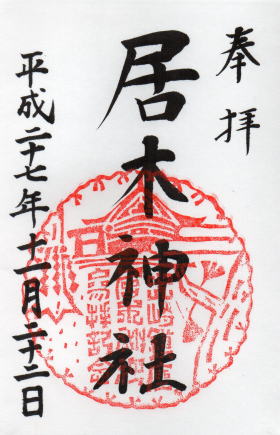 奉拝
居木神社
平成二十七年十一月二十二日